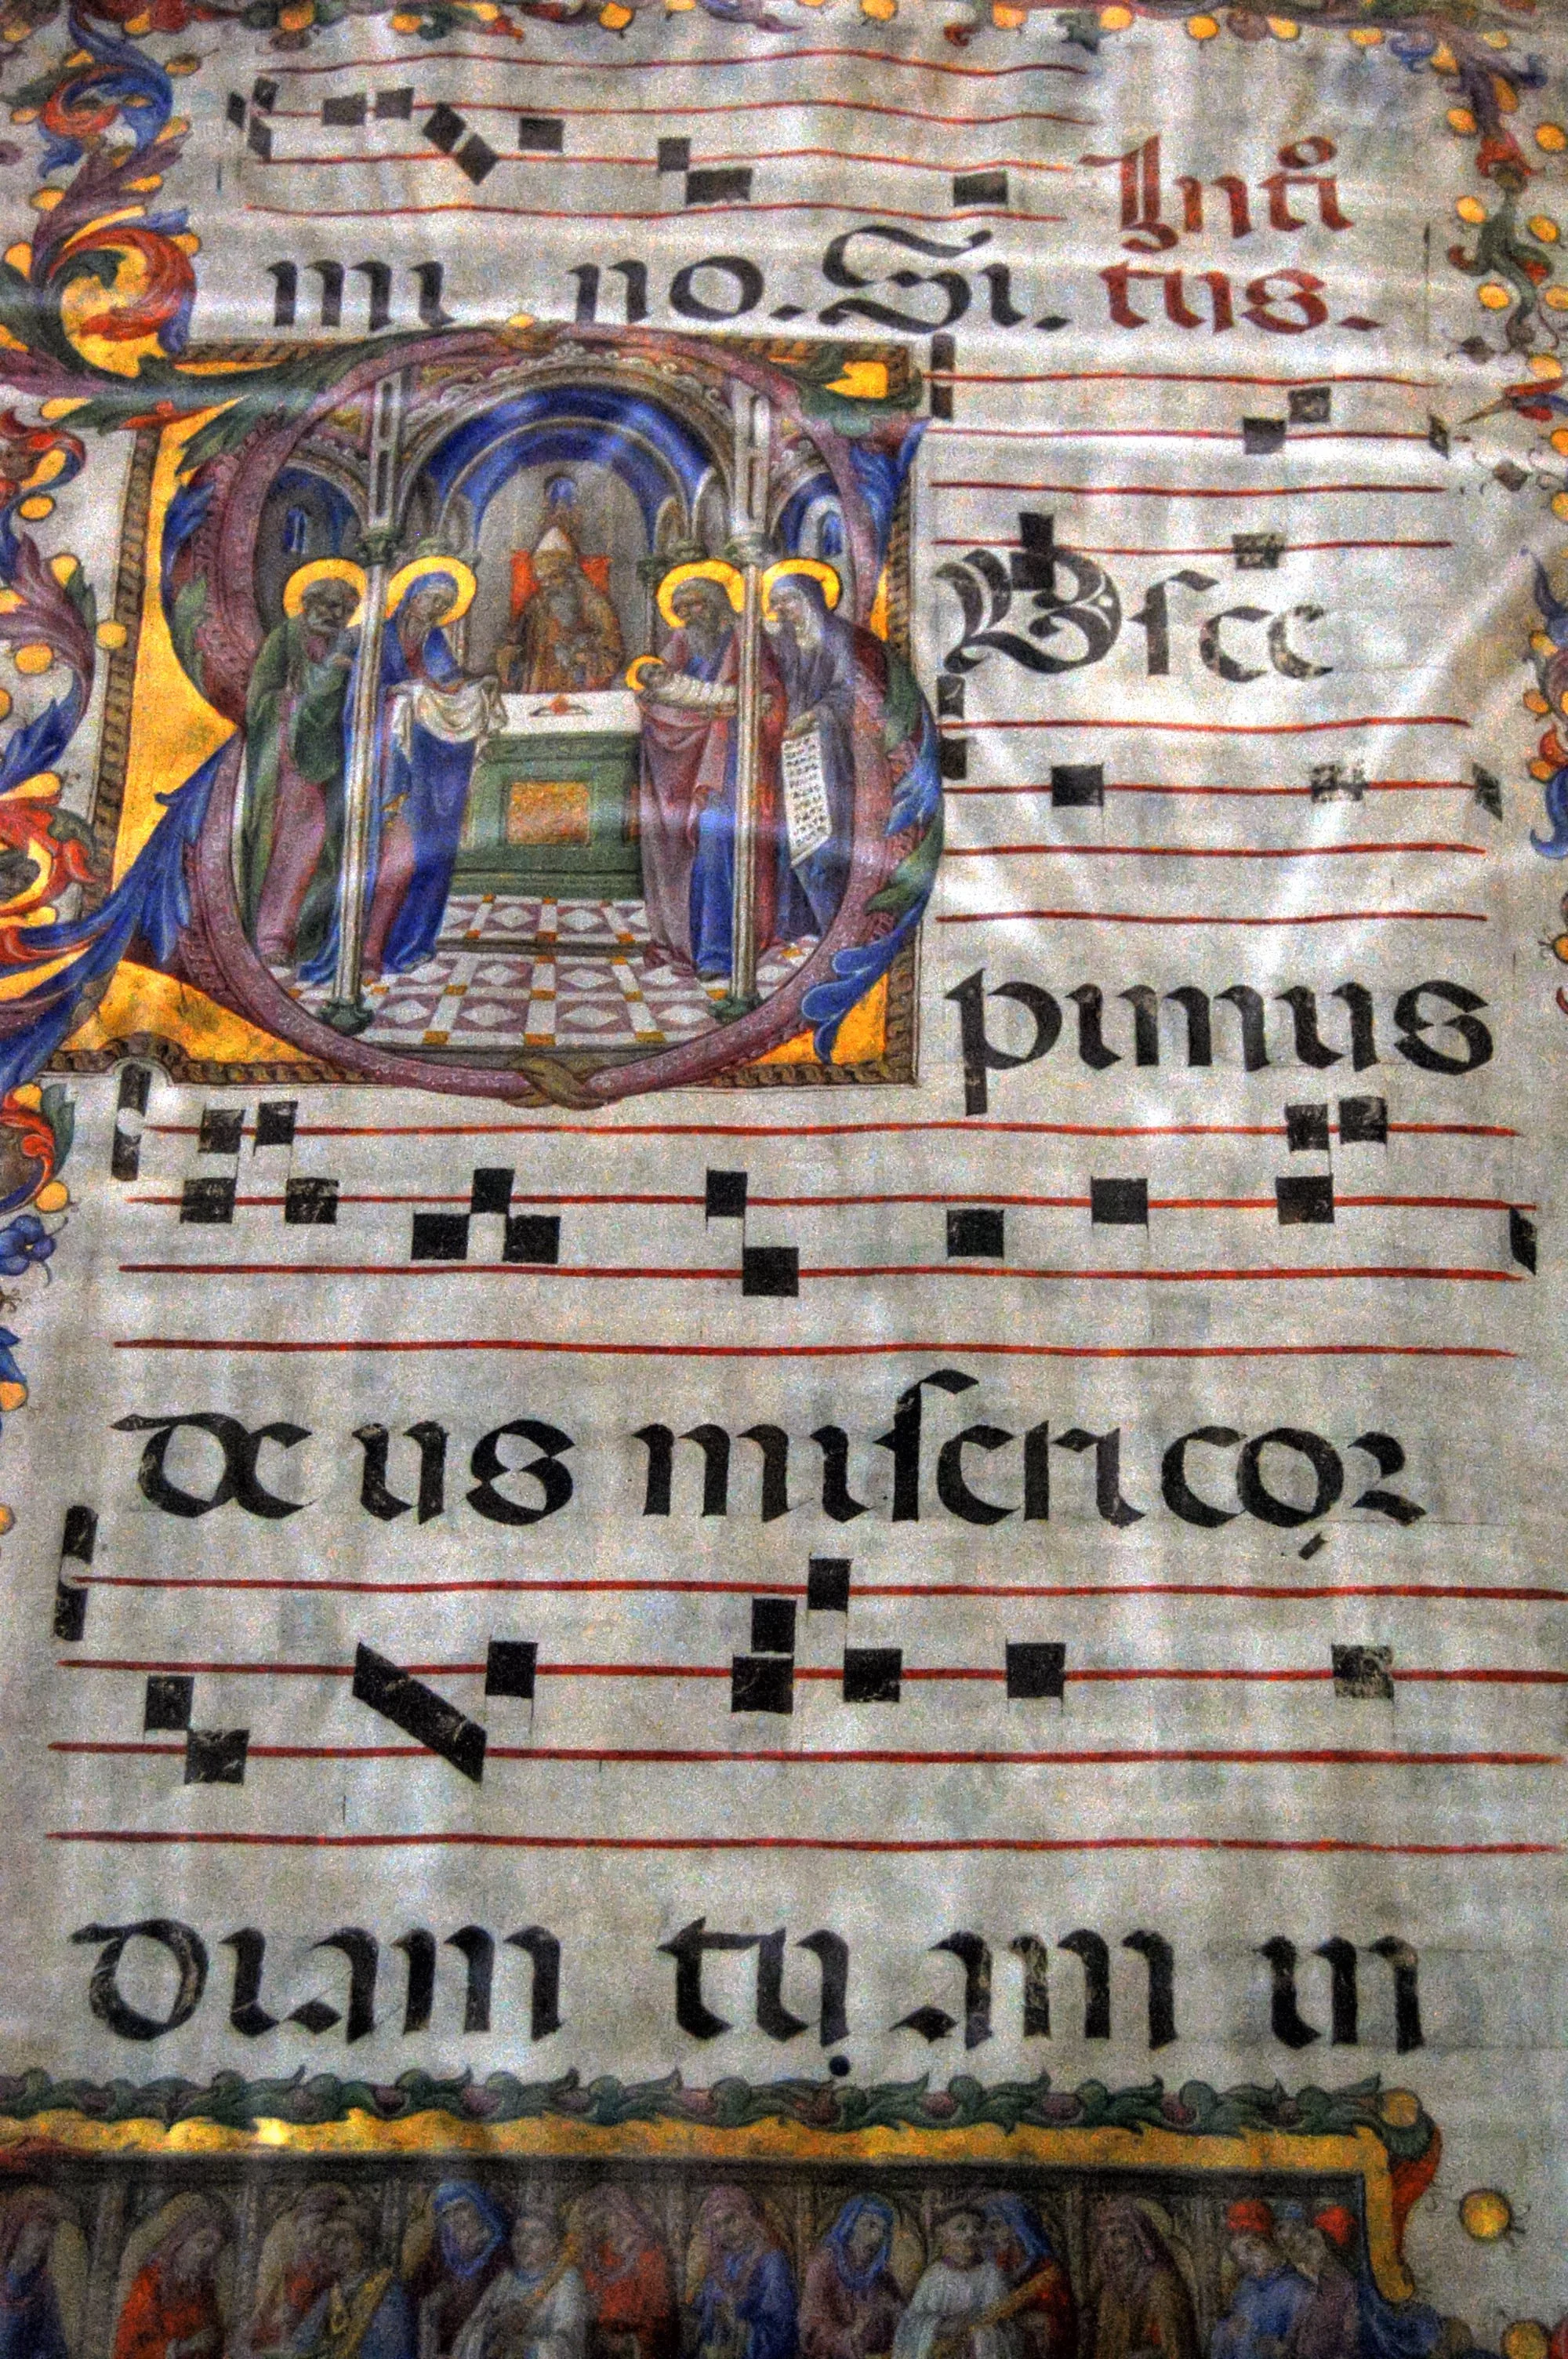 Intͦi
mi no. Si. tus.
S Uſce
pimus
de us miſericor
diam tuam in